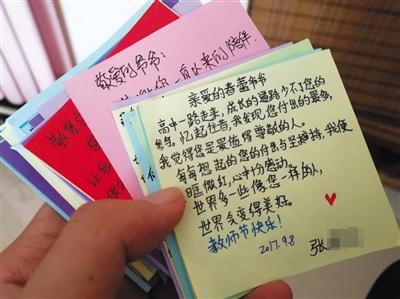 敬爱的爷爷:
一直以来的陪伴
敬爱
让
亲爱的春蕾爷爷
高中一路走来,成长的道路少不了您的
参与。忆起往昔,我发现,您付出的最多,
我觉得您是最值得尊敬的人。
每每想起的您的付出与坚持,我便
眼眶微红,心中十分感动。
世界多一些像您一样的人,
世界会变得美好。
教师节快乐!
2017.9.8 张